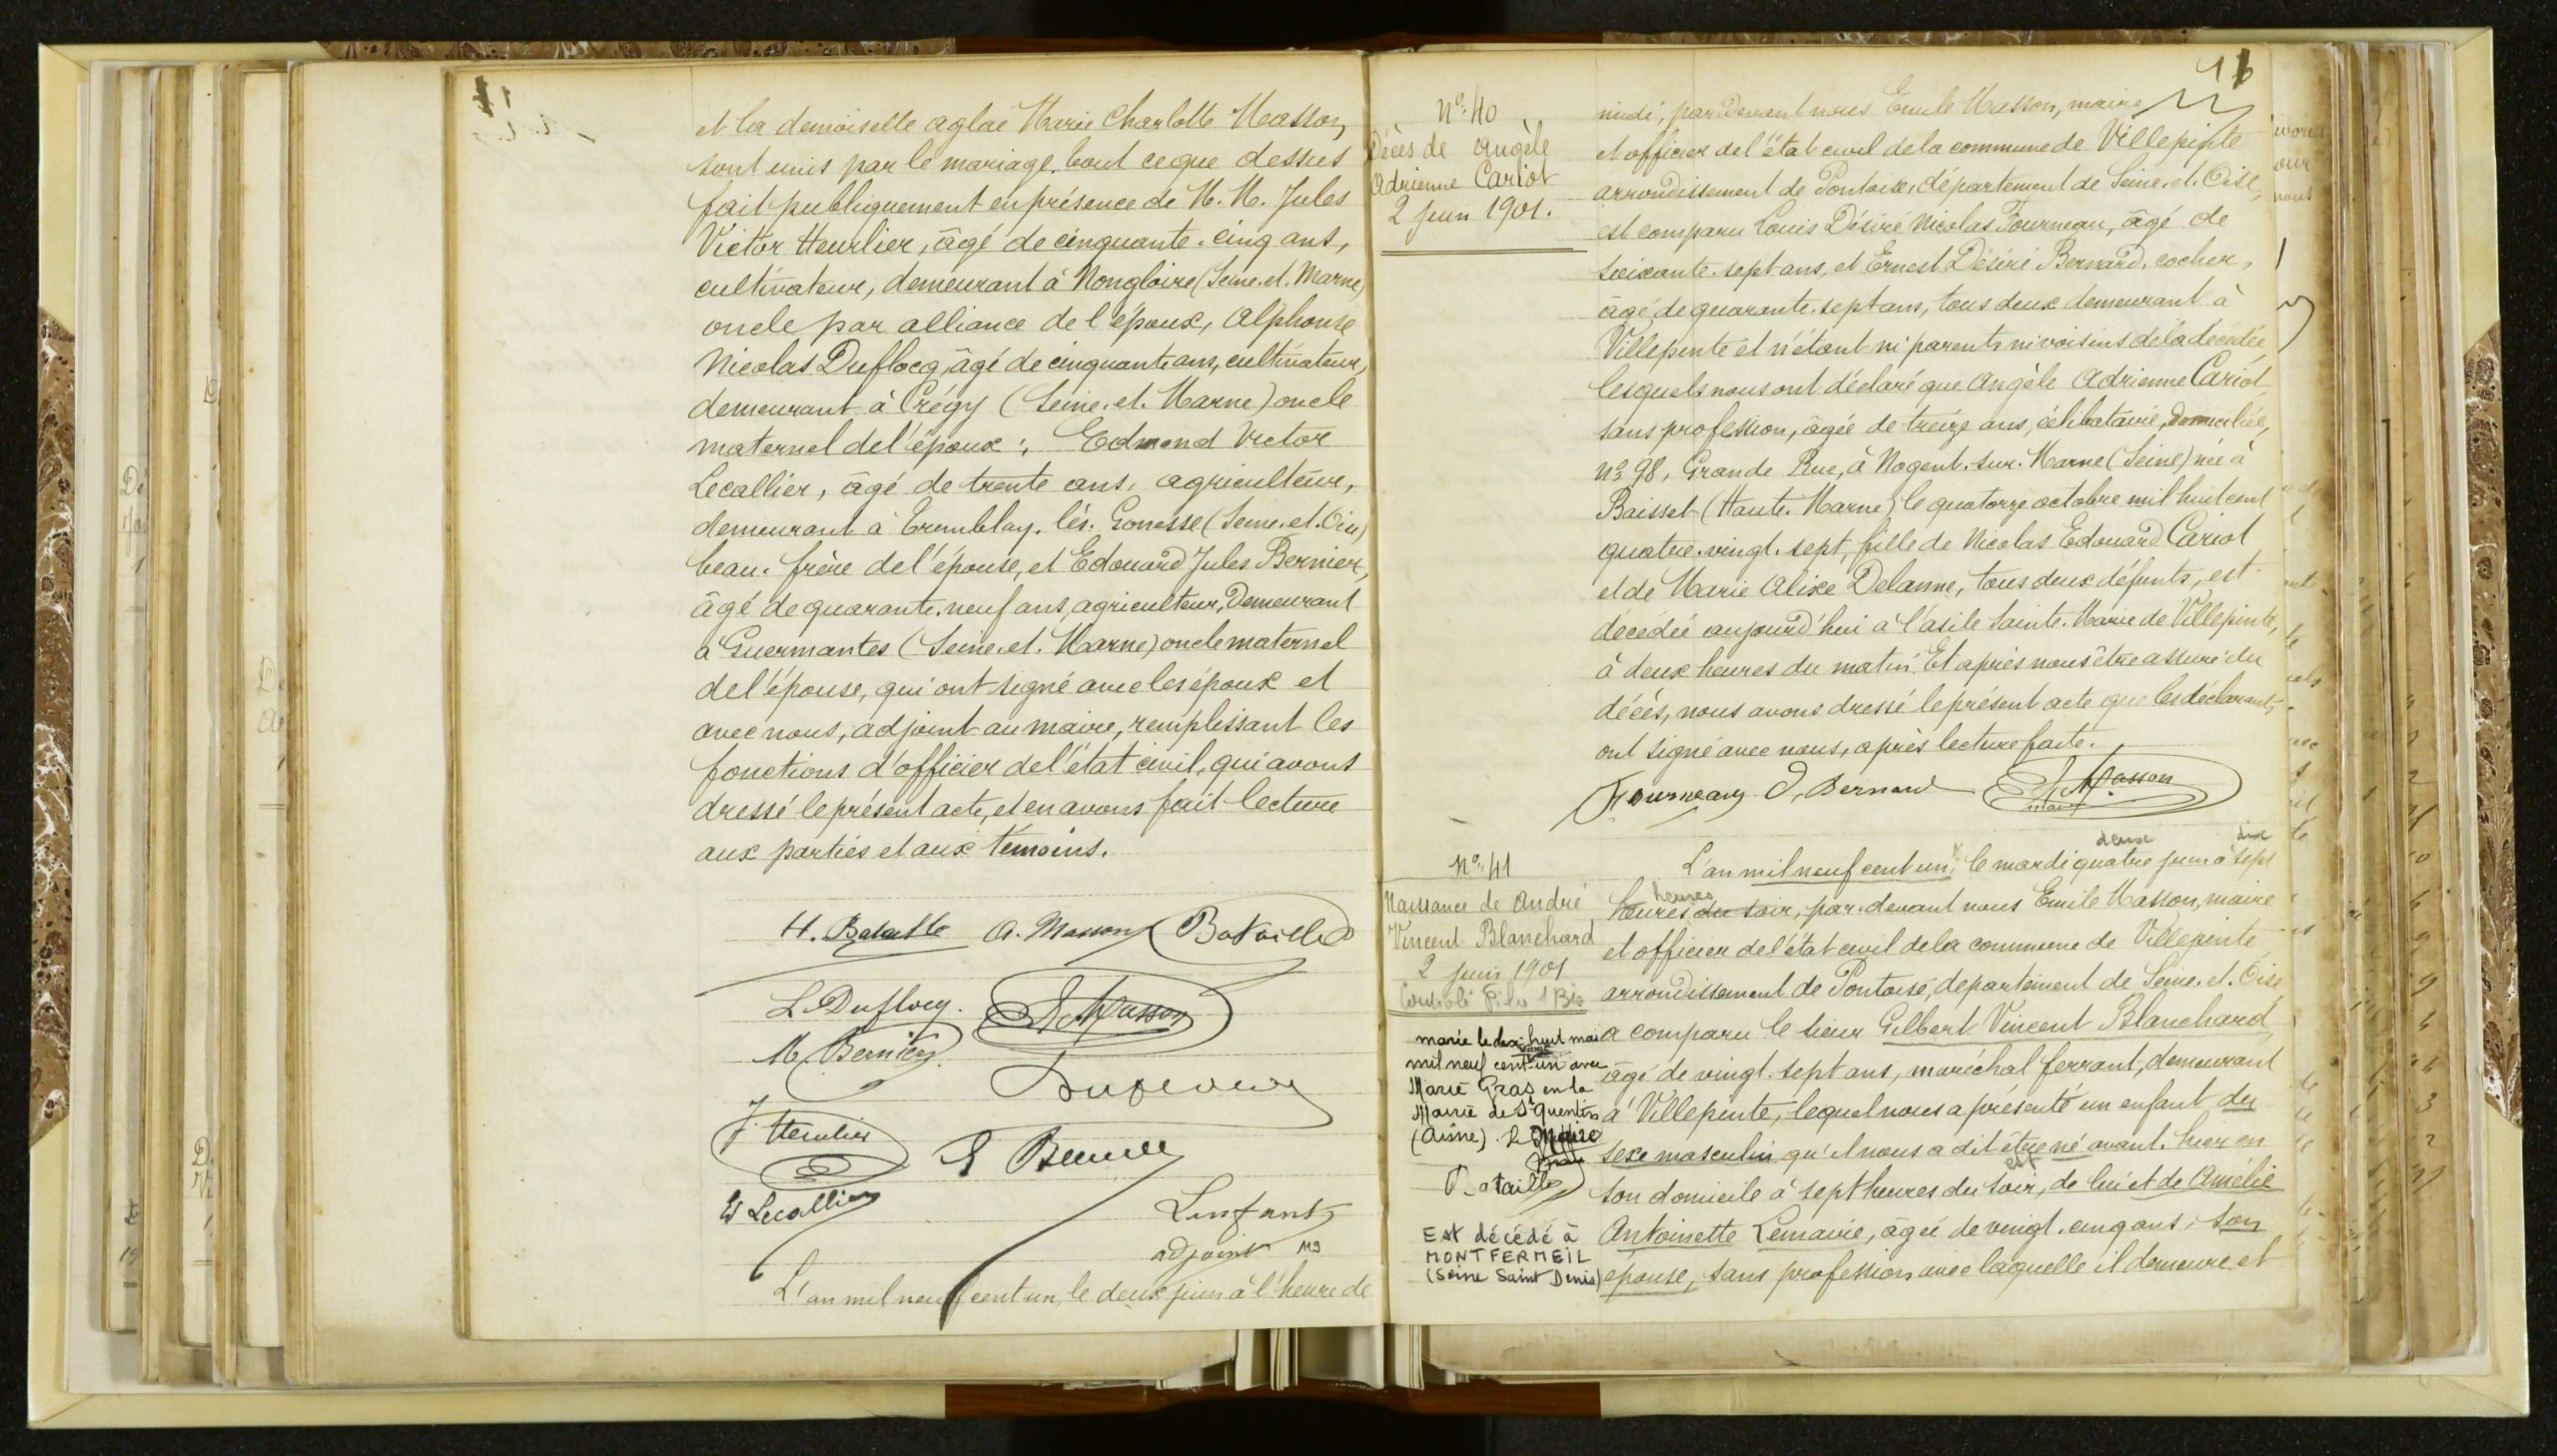 et la demoiselle aglaé Marie Charlotte Masson,
sont unis par le mariage. tout ce que dessus
fait publiquement en présence de M. M. Jules
Victor Heurlier, âgé de cinquante-cinq ans,
cultivateur, demeurant à Nongloire (Seine-et-Marne)
oncle par alliance de l'époux, Alphonse
Nicolas Duflocq, âgé de cinquante ans, cultivateur,
demeurant à Crégy (Seine-et-Marne) oncle
maternel de l'époux; Edmond Victor
Lecallier, âgé de trente ans, agriculteur,
demeurant à Tremblay-lès-Gonesse (Seine-et-Oise)
beau-frère de l'épouse, et Edouard Jules Bernier,
âgé de quarante-neuf ans, agriculteur, demeurant
à Guermantes (Seine-et-Marne) oncle maternel
de l'épouse, qui ont signé avec les époux et
avec nous, adjoint au maire, remplissant les
fonctions d'officier de l'état civil, qui avons
dressé le présent acte, et en avons fait lecture
aux parties et aux témoins.
H. Bataille A. Masson Bataille
L. Duflocq. E. Masson
M. Bernier
J. Heurlier
E Lecallier
Lenfant
adjoint
L'an mil neuf cent un, le deux juin à l'heure de
16
No. 40
Décès de Angèle
Adrienne Cariot
2 juin 1901.
midi, par devant nous Emile Masson, maire
et officier de l'état civil de la commune de Villepinte
arrondissement de Pontoise, département de Seine-et-Oise,
est comparu Louis Désiré Nicolas Fourneau, âgé de
soixante-sept ans, et Ernest Désiré Bernard, cocher,
âgé de quarante-sept ans, tous deux demeurant à
Villepinte et n'étant ni parents ni voisins de la décédée
lesquels nous ont déclaré que Angèle Adrienne Cariot
sans profession, âgée de treize ans, célibataire, domiciliée,
No 98, Grande Rue, à Nogent-sur-Marne (Seine) née à
Baisset (Haute-Marne) le quatorze octobre mil huit cent
quatre-vingt-sept, fille de Nicolas Edouard Cariot
et de Marie Alixe Delanne, tous deux défunts, est
décédée aujourd'hui à l'asile Sainte-Marie de Villepinte,
à deux heures du matin. Et après nous être assuré du
décès, nous avons dressé le présent acte que les déclarants
ont signé avec nous, après lecture faite.
Fourneau D. Bernard E. Masson
maire
No. 41
Naissance de André
Vincent Blanchard
2 juin 1901
marié le dix-huit mai
mil neuf cent un avec
Marie Gras en la
Mairie de St Quentin
(Aisne). Le Maire
Bataille
Est décédé à
MONTFERMEIL
(Seine Saint Denis)
deux dix
L'an mil neuf cent un, le mardi quatre juin à sept
heures
heures du soir, par-devant nous Emile Masson, maire
et officier de l'état civil de la commune de Villepinte
arrondissement de Pontoise, département de Seine-et-Oise,
a comparu le sieur Gilbert Vincent Blanchard
âgé de vingt-sept ans, maréchal ferrant, demeurant
à Villepinte, lequel nous a présenté un enfant du
sexe masculin qu'il nous a dit être né avant-hier en
est
son domicile à sept heures du soir, de lui et de Amélie
Antoinette Lemaire, âgée de vingt-cinq ans, son
épouse, sans profession avec laquelle il demeure et